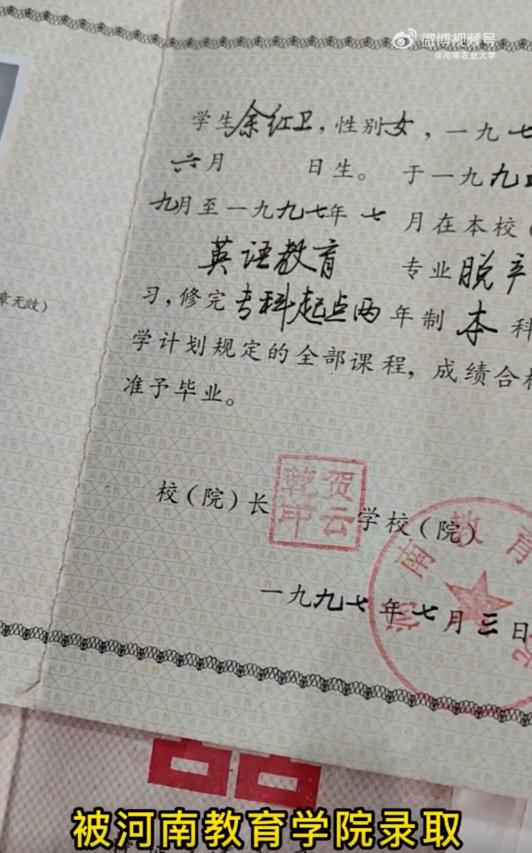 微博视频号
@河南农业大学
学生余红卫，性别女，一九七
六月　　日生。于一九九
九月至一九九七年七月在本校（
英语教育　专业脱产
习，修完专科起点两年制本科
学计划规定的全部课程，成绩合格
准予毕业。
章无效）
校（院）长
贺云乾印
学校（院）
河南教育
一九九七年七月三日
囍
被河南教育学院录取